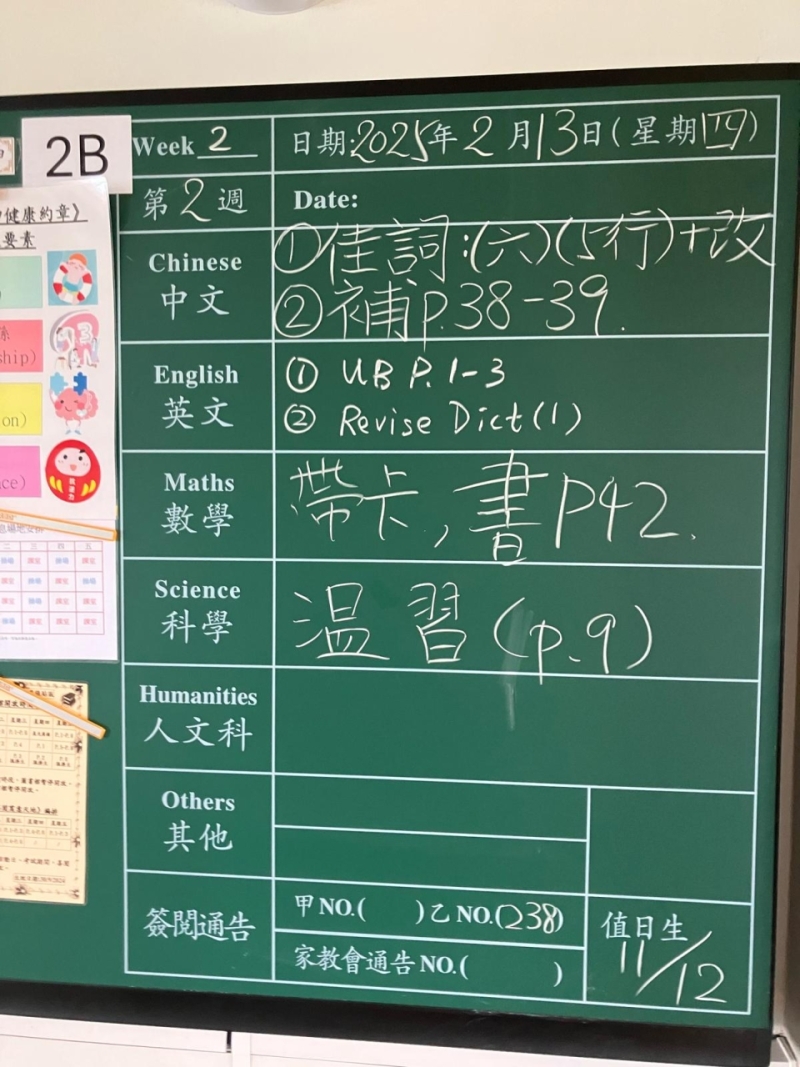 2B
Week 2
日期:2025年2月13日(星期四)
第2週
Date:
Chinese
中文
①佳詞:(六)(5行)+改
②補p.38-39.
English
英文
① UB P.1-3
② Revise Dict(1)
Maths
數學
帶卡,書P42.
Science
科學
溫習(p.9)
Humanities
人文科
Others
其他
簽閱通告
甲NO.( )乙NO.(238)
家教會通告NO.( )
值日生
11/12
健康約章》
要素
係
ship)
on)
ce)
二 三 四 五